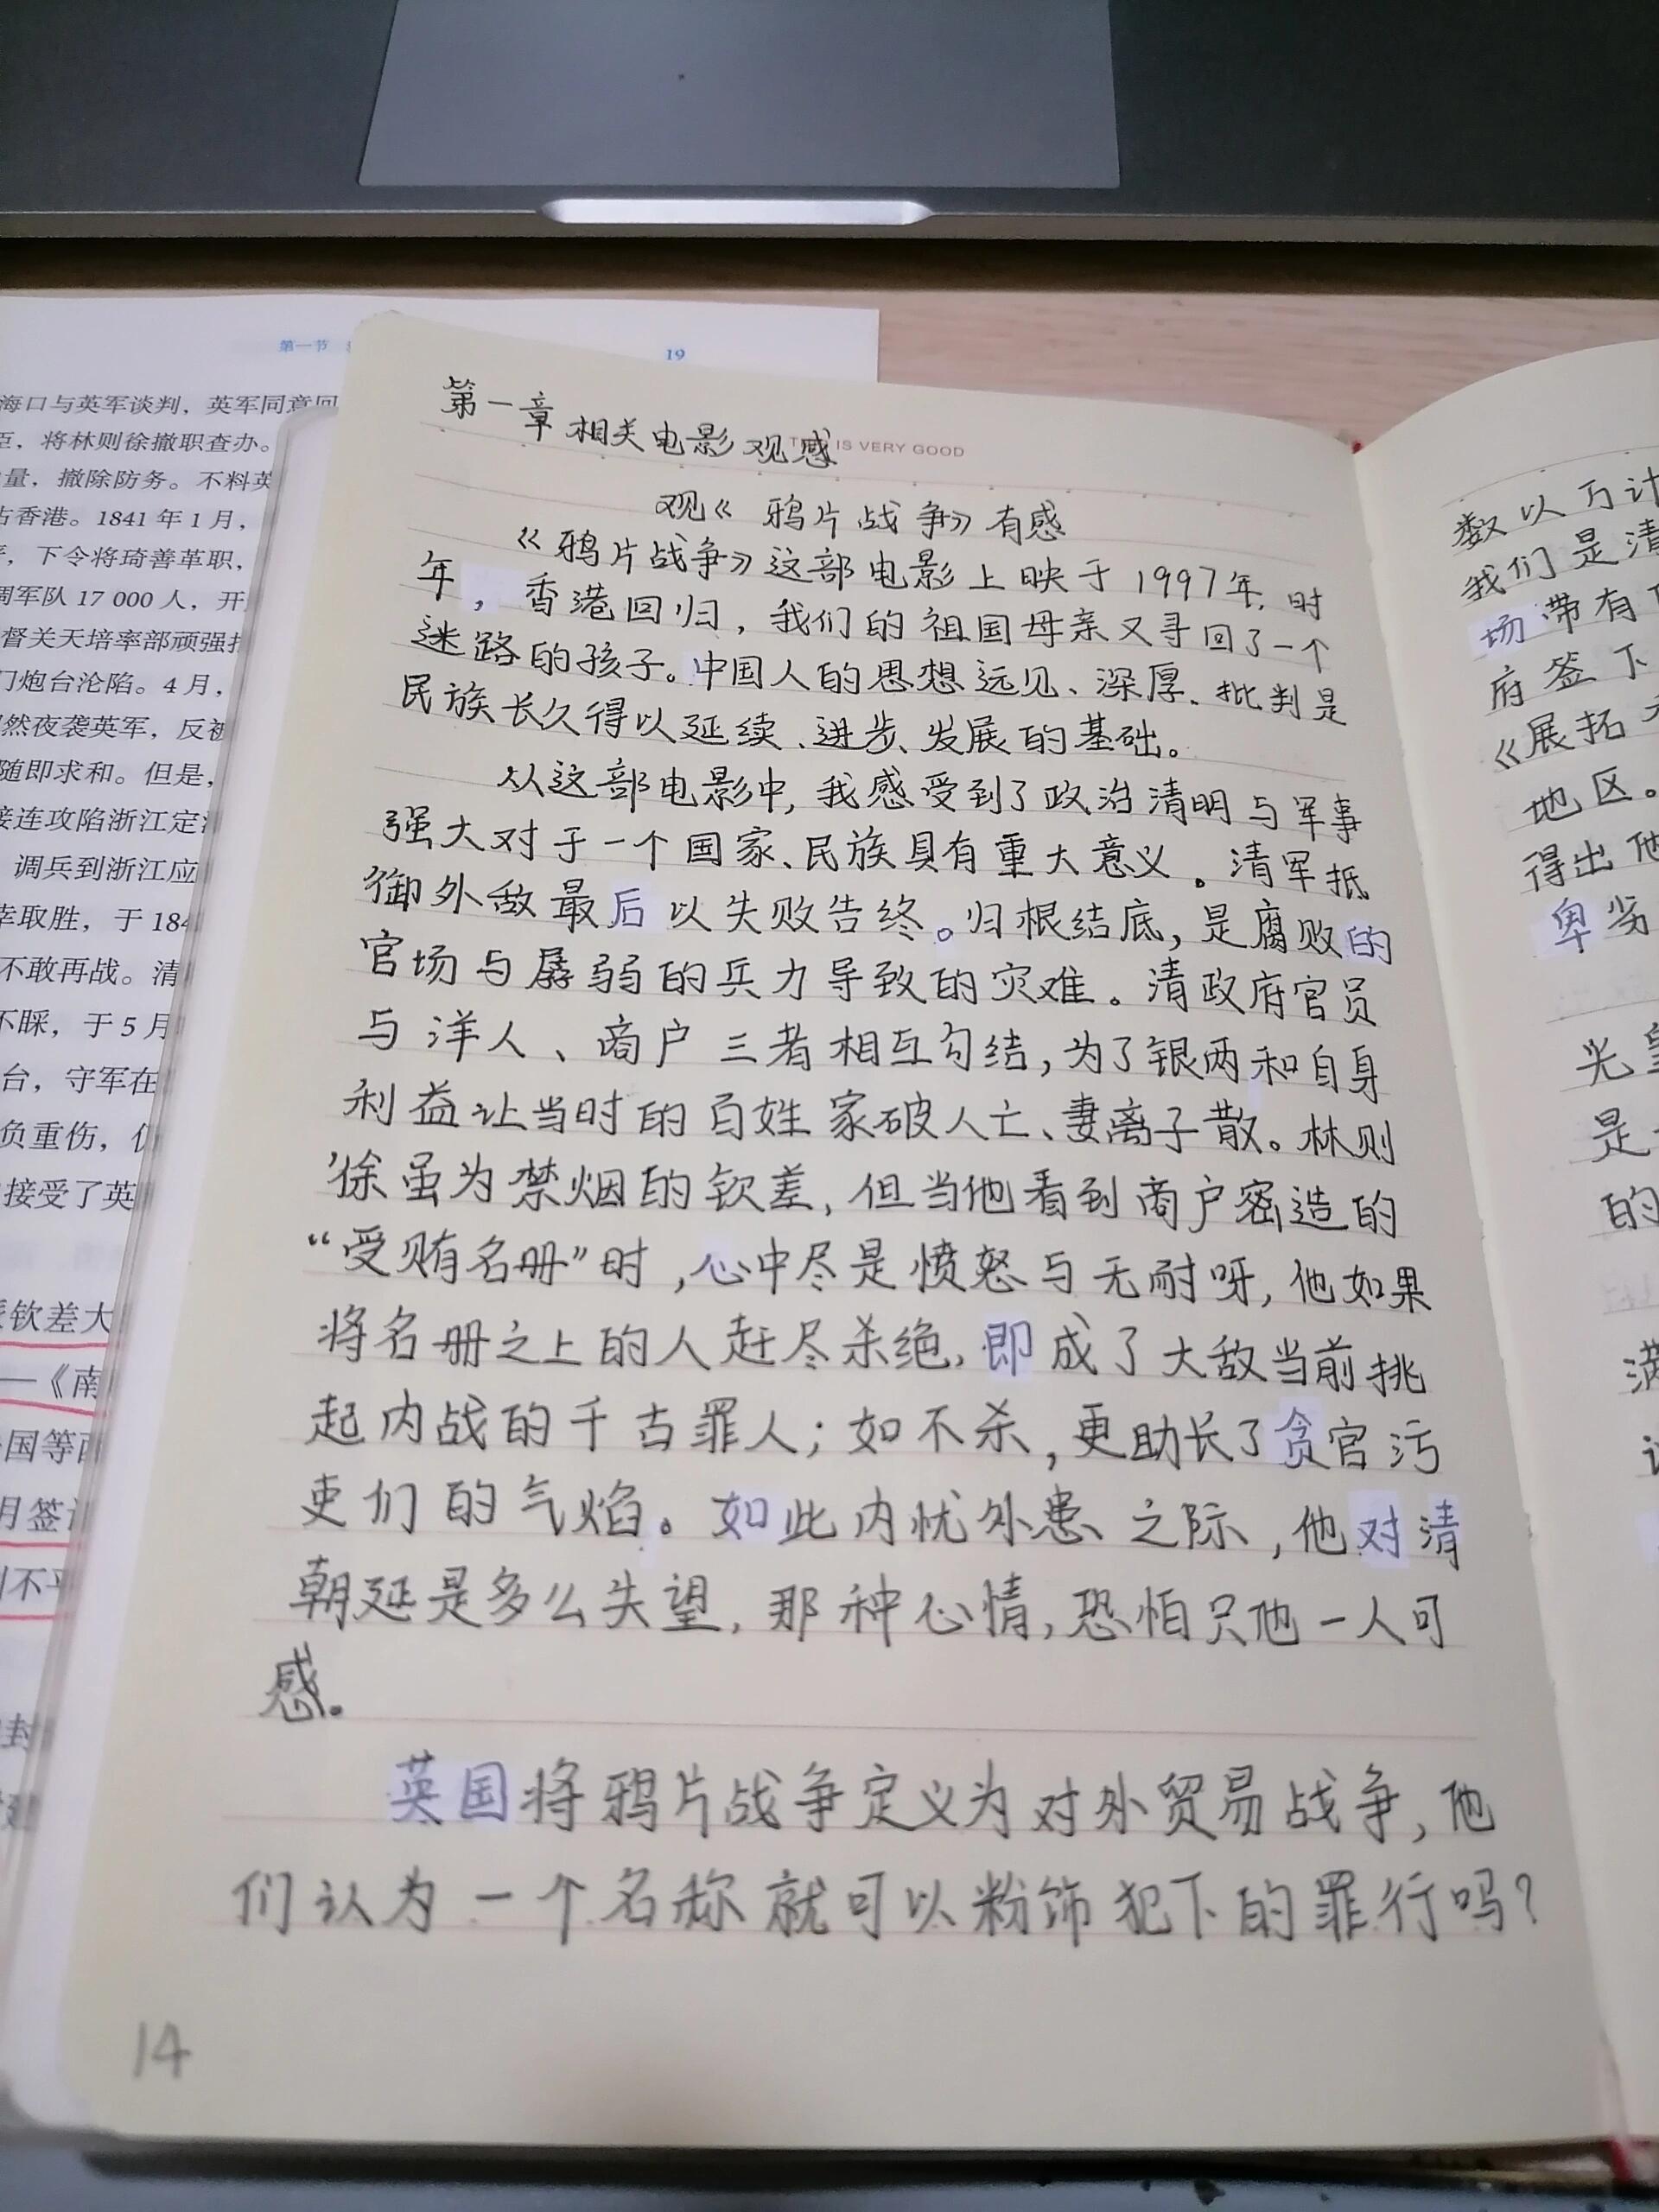 第一节
19
海口与英军谈判，英军同意回
将林则徐撤职查办。
量，撤除防务。不料英
占香港。1841年1月，
下令将琦善革职，
调军队17 000人，开
督关天培率部顽强
门炮台沦陷。4月，
然夜袭英军，反被
随即求和。但是，
接连攻陷浙江定
调兵到浙江应
幸取胜，于184
不敢再战。清
不睬，于5月
台，守军在
负重伤，仍
接受了英
钦差大
—《南
国等
月签订
不平
封
第一章 相关电影观感
IS VERY GOOD
观《鸦片战争》有感
《鸦片战争》这部电影上映于1997年，时
年，香港回归，我们的祖国母亲又寻回了一个
迷路的孩子。中国人的思想远见、深厚、批判是
民族长久得以延续、进步、发展的基础。
从这部电影中，我感受到了政治清明与军事
强大对于一个国家、民族具有重大意义。清军抵
御外敌最后以失败告终。归根结底，是腐败的
官场与孱弱的兵力导致的灾难。清政府官员
与洋人、商户三者相互勾结，为了银两和自身
利益让当时的百姓家破人亡、妻离子散。林则
徐虽为禁烟的钦差，但当他看到商户密造的
“受贿名册”时，心中尽是愤怒与无耐呀，他如果
将名册之上的人赶尽杀绝，即成了大敌当前挑
起内战的千古罪人；如不杀，更助长了贪官污
吏们的气焰。如此内忧外患之际，他对清
朝延是多么失望，那种心情，恐怕只他一人可
感。
英国将鸦片战争定义为对外贸易战争，他
们认为一个名称就可以粉饰犯下的罪行吗？
14
数以万计
我们是清
场带有
府签下
《展拓
地区。
得出他
卑劣
光皇
是
的
满